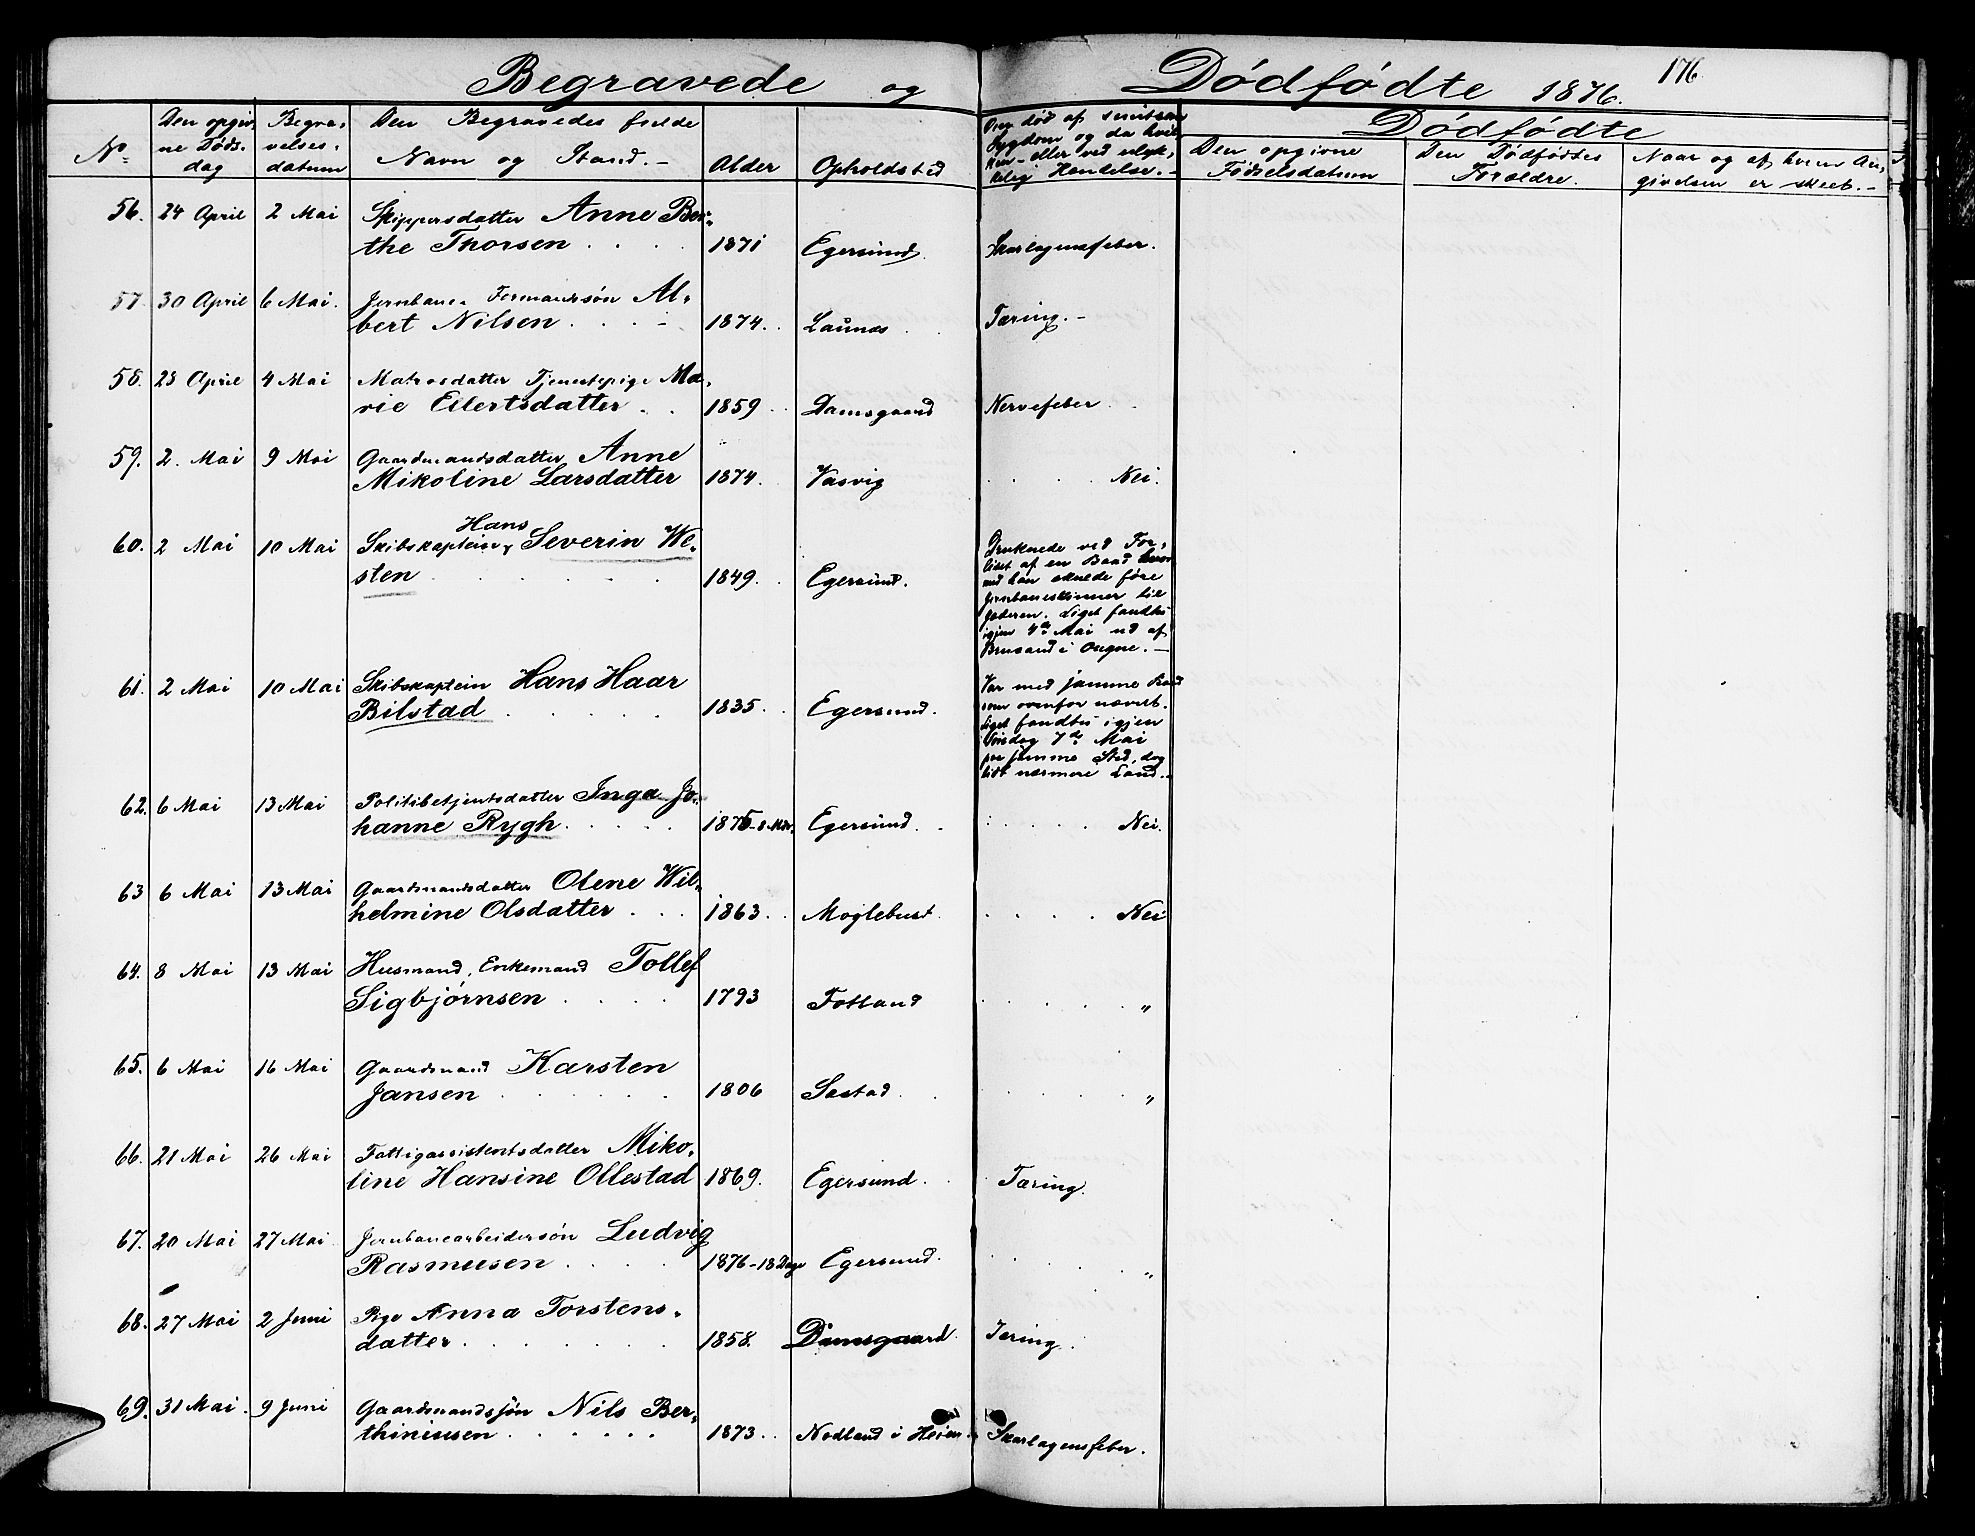 Begravede og Dødfødte 1876. 176.
No Den opgivne Døds-dag Begravelses-datum Den Begravedes fulde Navn og Stand. Alder Opholdsted Om død af smitsom Sygdom og da hvilken - eller ved ulykkelig Hændelse. Dødfødte
Den opgivne Fødselsdatum Den Dødfødtes Forældre. Naar og af hvem Angivelsen er skeet.
56. 24 April 2 Mai Skippersdatter Anne Ber-
the Thorsen 1871 Egersund. Skarlagensfeber.
57. 30 April 6 Mai. Jernbane Formandssøn Al-
bert Nilsen 1874. Launes Tæring.
58. 28 April 4 Mai Matrosdatter Tjenestepige Ma-
rie Eilertsdatter 1859 Damsgaard Nervefeber
59. 2. Mai 9 Mai Gaardmandsdatter Anne
Mikoline Larsdatter 1874. Vasvig Nei.
Hans
60. 2 Mai 10 Mai Skibskaptein, Severin We-
sten 1849. Egersund.
Druknede ved For-
liset af en Baad hvor
med han skulde føre
Jernbaneskinner til
Jæderen. Liget fandtes
igjen 4de Mai ud af
Brusand i Ongne.
61. 2 Mai 10 Mai Skibskaptein Hans Haar
Bilstad 1835. Egersund.
Var med samme Baad
som ovenfor nævnt.
Liget fandtes igjen
7de Mai
paa samme Sted, dog
lidt nærmere Land.
62. 6 Mai 13 Mai Politibetjentsdatter Inga Jo-
hanne Rygh 1875-8 Mdr. Egersund. Nei.
63 6 Mai 13 Mai Gaardmandsdatter Olene Wil-
helmine Olsdatter 1863. Moglebust Nei
64. 8 Mai 13 Mai Husmand, Enkemand Tollef
Sigbjørnsen 1793 Fotland "
65. 6 Mai 16 Mai Gaardmand Karsten
Jansen 1806 Sæstad "
66. 21 Mai 26 Mai Fattigassistentsdatter Miko-
line Hansine Ollestad 1869. Egersund. Tæring.
67. 20 Mai 27 Mai Jernbanearbeidersøn Ludvig
Rasmussen 1876-18 Dage Egersund. "
68. 27 Mai 2 Juni Pige Anna Torstens-
datter 1858. Damsgaard Tæring.
69. 31 Mai. 9 Juni Gaardmandssøn Nils Ber-
thiniusen 1873. Nodland i Heien Skarlagensfeber.